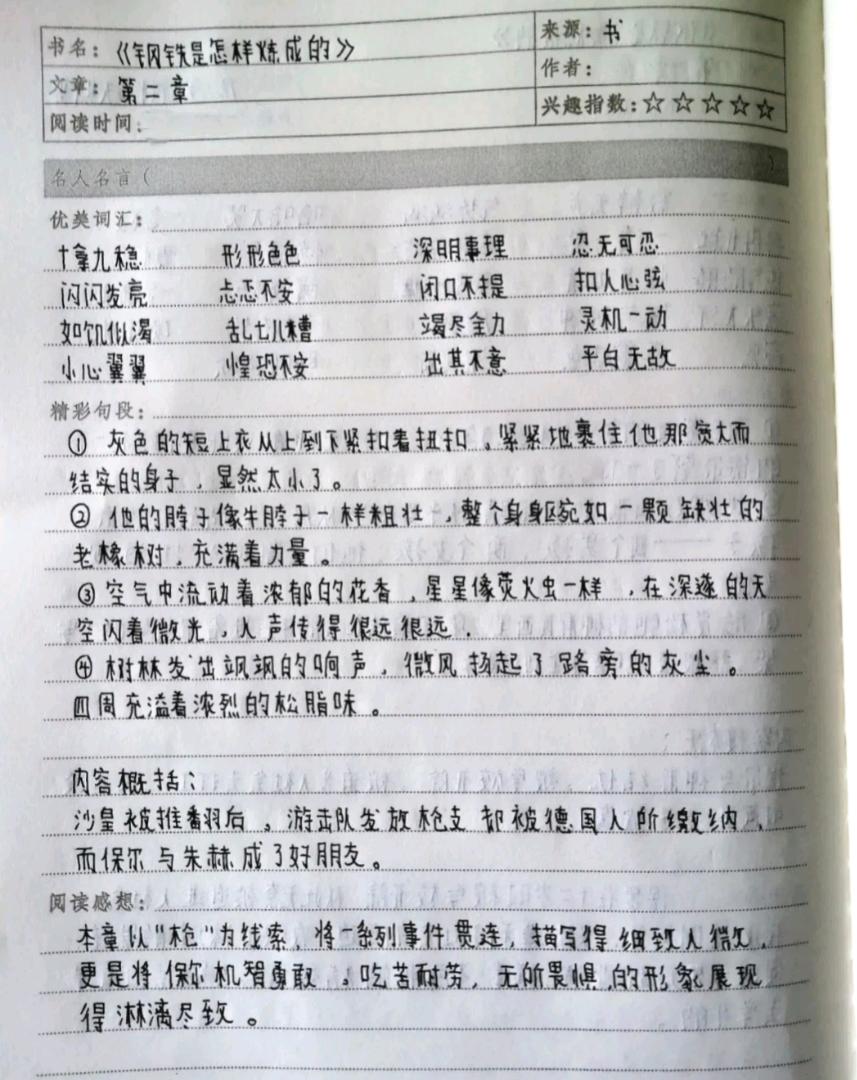 书名：《钢铁是怎样炼成的》 来源：书
文章：第二章 作者：
阅读时间： 兴趣指数：☆☆☆☆☆
名人名言（ ）
优美词汇：
十拿九稳 形形色色 深明事理 忍无可忍
闪闪发亮 忐忑不安 闭口不提 扣人心弦
如饥似渴 乱七八糟 竭尽全力 灵机一动
小心翼翼 惶恐不安 出其不意 平白无故
精彩句段：
① 灰色的短上衣从上到下紧扣着扭扣。紧紧地裹住他那宽大而
结实的身子，显然太小了。
② 他的脖子像牛脖子一样粗壮，整个身躯宛如一颗缺壮的
老橡树，充满着力量。
③ 空气中流动着浓郁的花香，星星像荧火虫一样，在深邃的天
空闪着微光，人声传得很远很远．
④ 树林发出飒飒的响声，微风扬起了路旁的灰尘。
四周充溢着浓烈的松脂味。
内容概括：
沙皇被推翻后。游击队发放枪支却被德国人所缴纳，
而保尔与朱赫成了好朋友。
阅读感想：
本章以“枪”为线索，将一系列事件贯连，描写得细致入微，
更是将保尔机智勇敢。吃苦耐劳，无所畏惧的形象展现
得淋漓尽致。